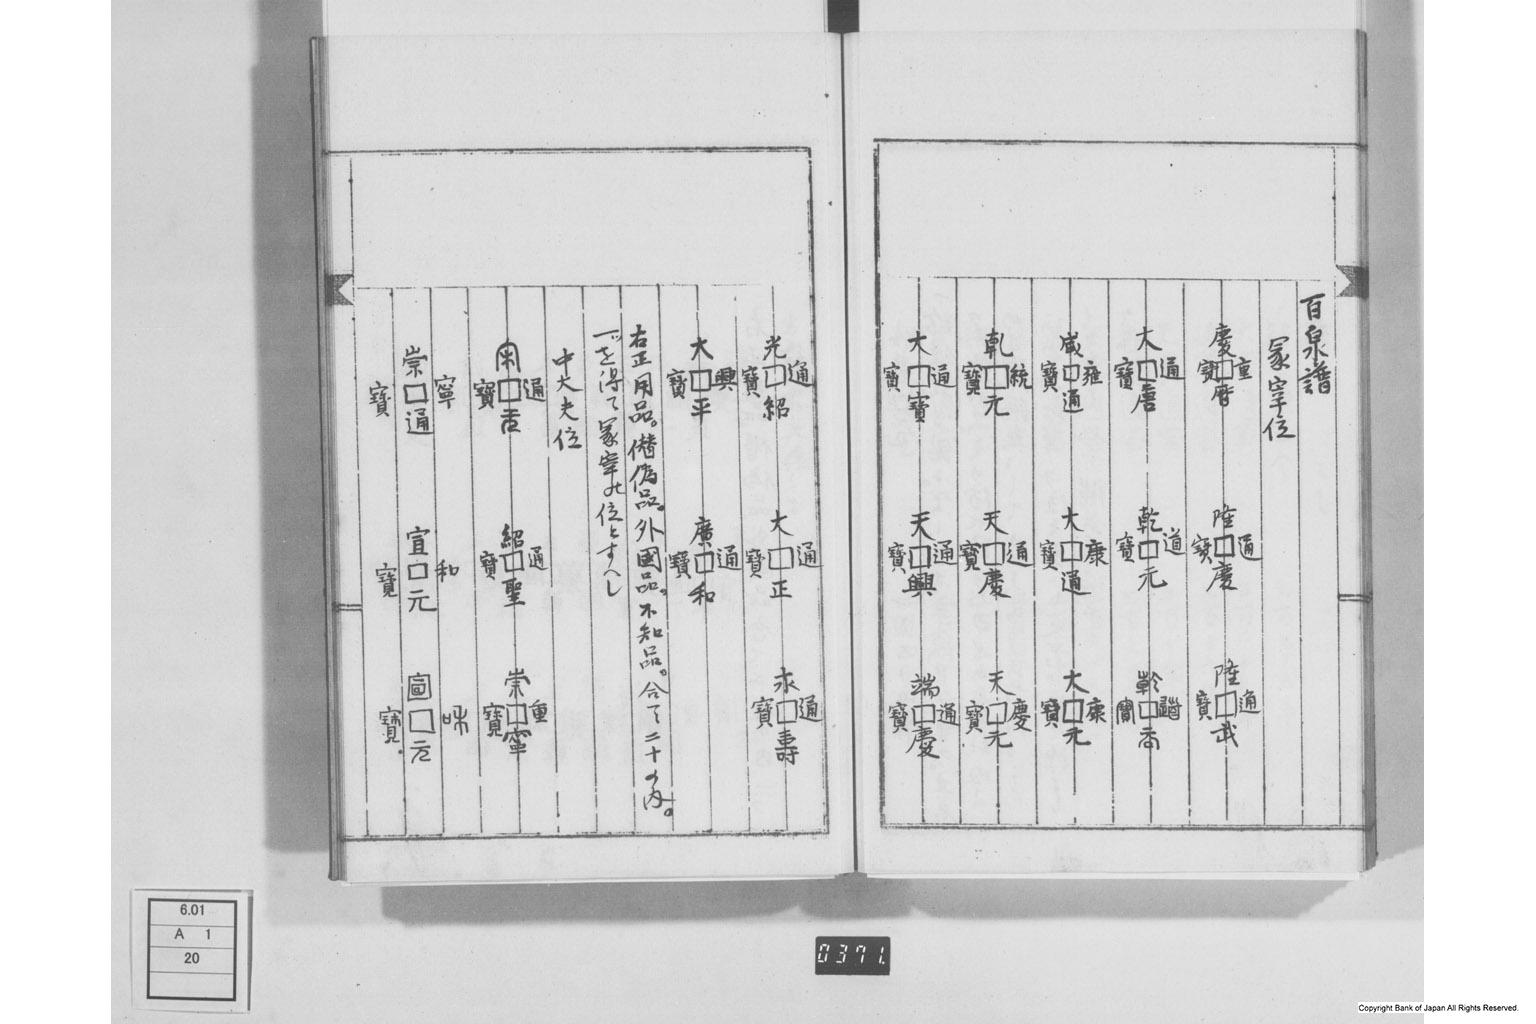 百泉譜
冢宰位
慶□曆 重寶
隆□慶 通寶
隆□武 通寶
大□唐 通寶
乾□元 道寶
咸□通 雍寶
大□通 康寶
大□元 康寶
乾□元 統寶
天□慶 通寶
天□元 慶寶
大□寶 通寶
天□興 通寶
端□慶 通寶
光□紹 通寶
大□正 通寶
永□壽 通寶
大□平 興寶
廣□和 通寶
右正用品。僭偽品。外國品。不知品。合て二十の内。
一ツを得て冢宰の位とすへし
中大夫位
通寶
紹□聖 通寶
崇□寧 重寶
崇□通 寧寶
宣□元 和寶
元 寶
6.01
A 1
20
0371.
Copyright Bank of Japan All Rights Reserved.